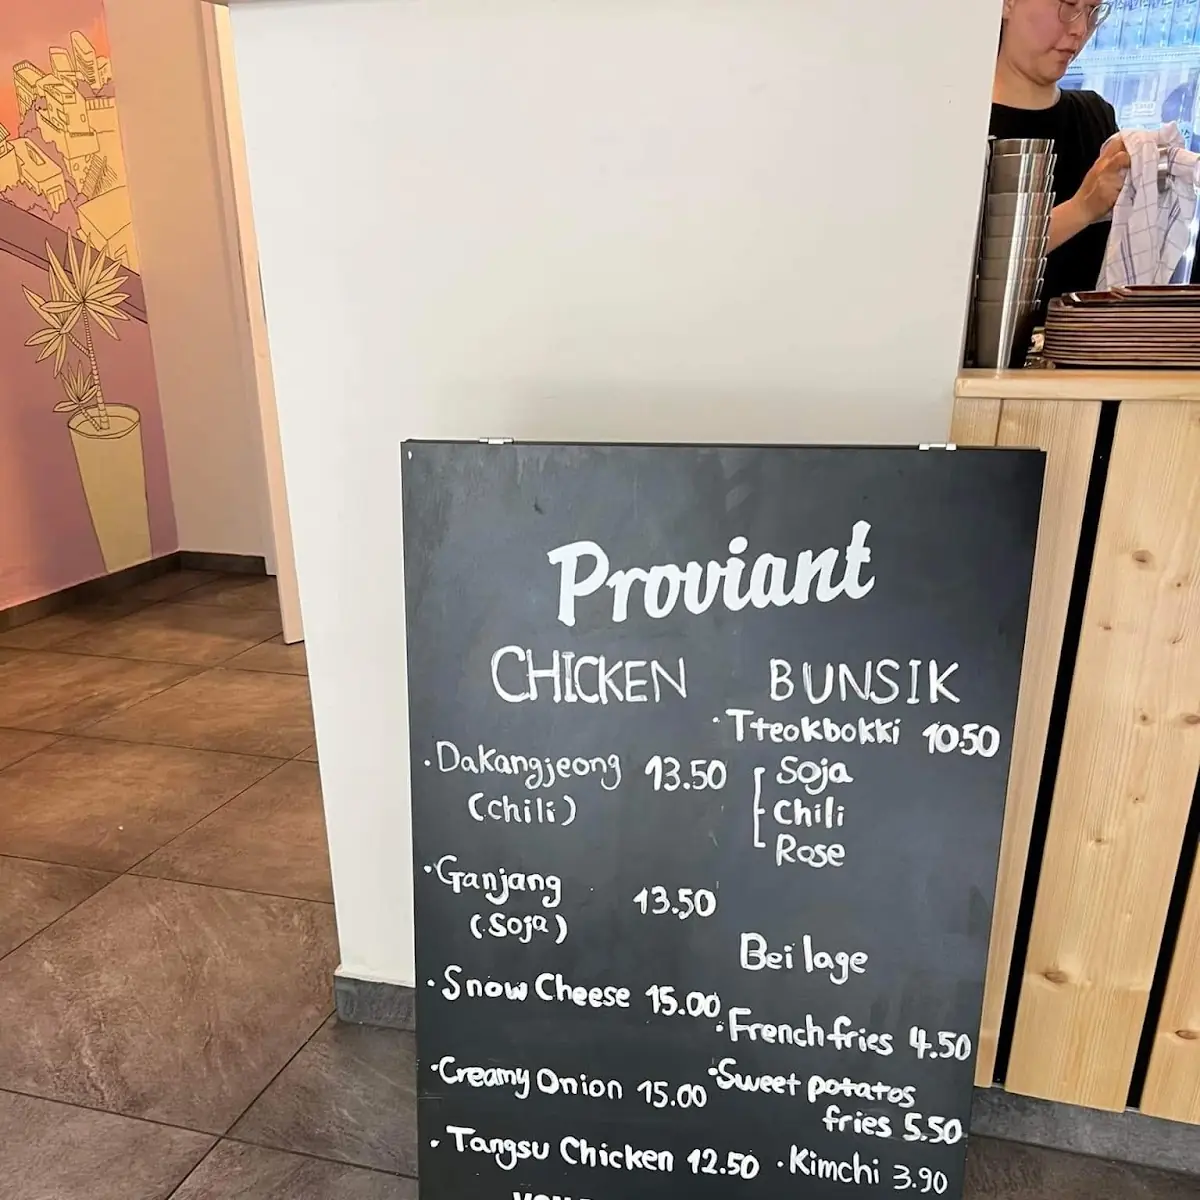 Proviant
CHICKEN
· Dakangjeong 13.50
(chili)
· Ganjang 13.50
(Soja)
· Snow Cheese 15.00
· Creamy Onion 15.00
· Tangsu Chicken 12.50
BUNSIK
· Tteokbokki 10.50
Soja
Chili
Rose
Beilage
· French fries 4.50
· Sweet potatos
fries 5.50
· Kimchi 3.90